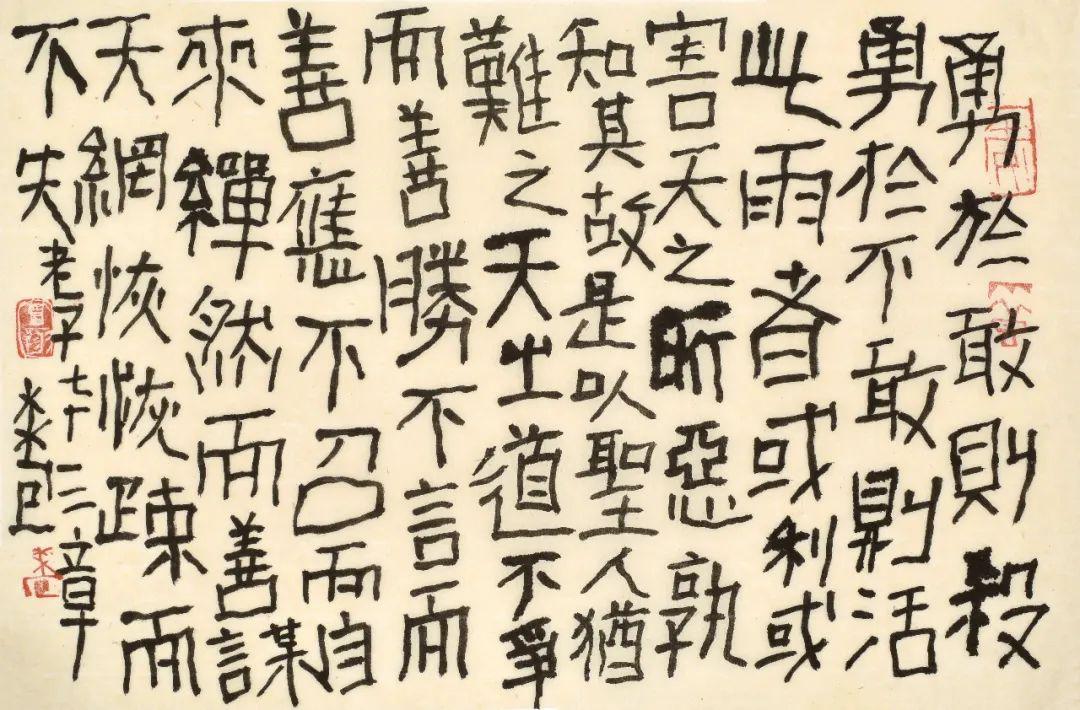 勇於敢則殺
勇於不敢則活
此兩者或利或
害天之所惡孰
知其故是以聖人猶
難之天之道不爭
而善勝不言而
善應不召而自
來繟然而善謀
天網恢恢疎而
不失
老子七十三章